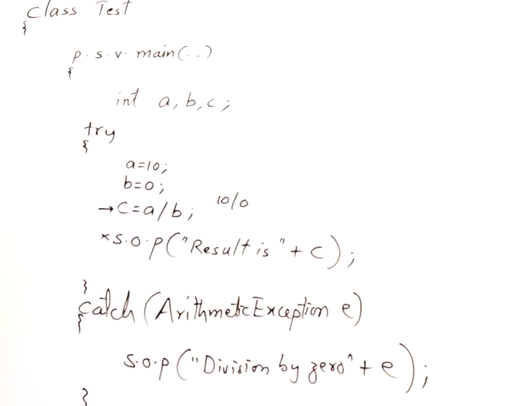 class Test
{
p.s.v. main(..)
{
int a,b,c;
try
{
a=10;
b=0;
→c=a/b; 10/0
×s.o.p("Result is"+c);
}
catch(ArithmeticException e)
{
s.o.p("Division by zero"+e);
}